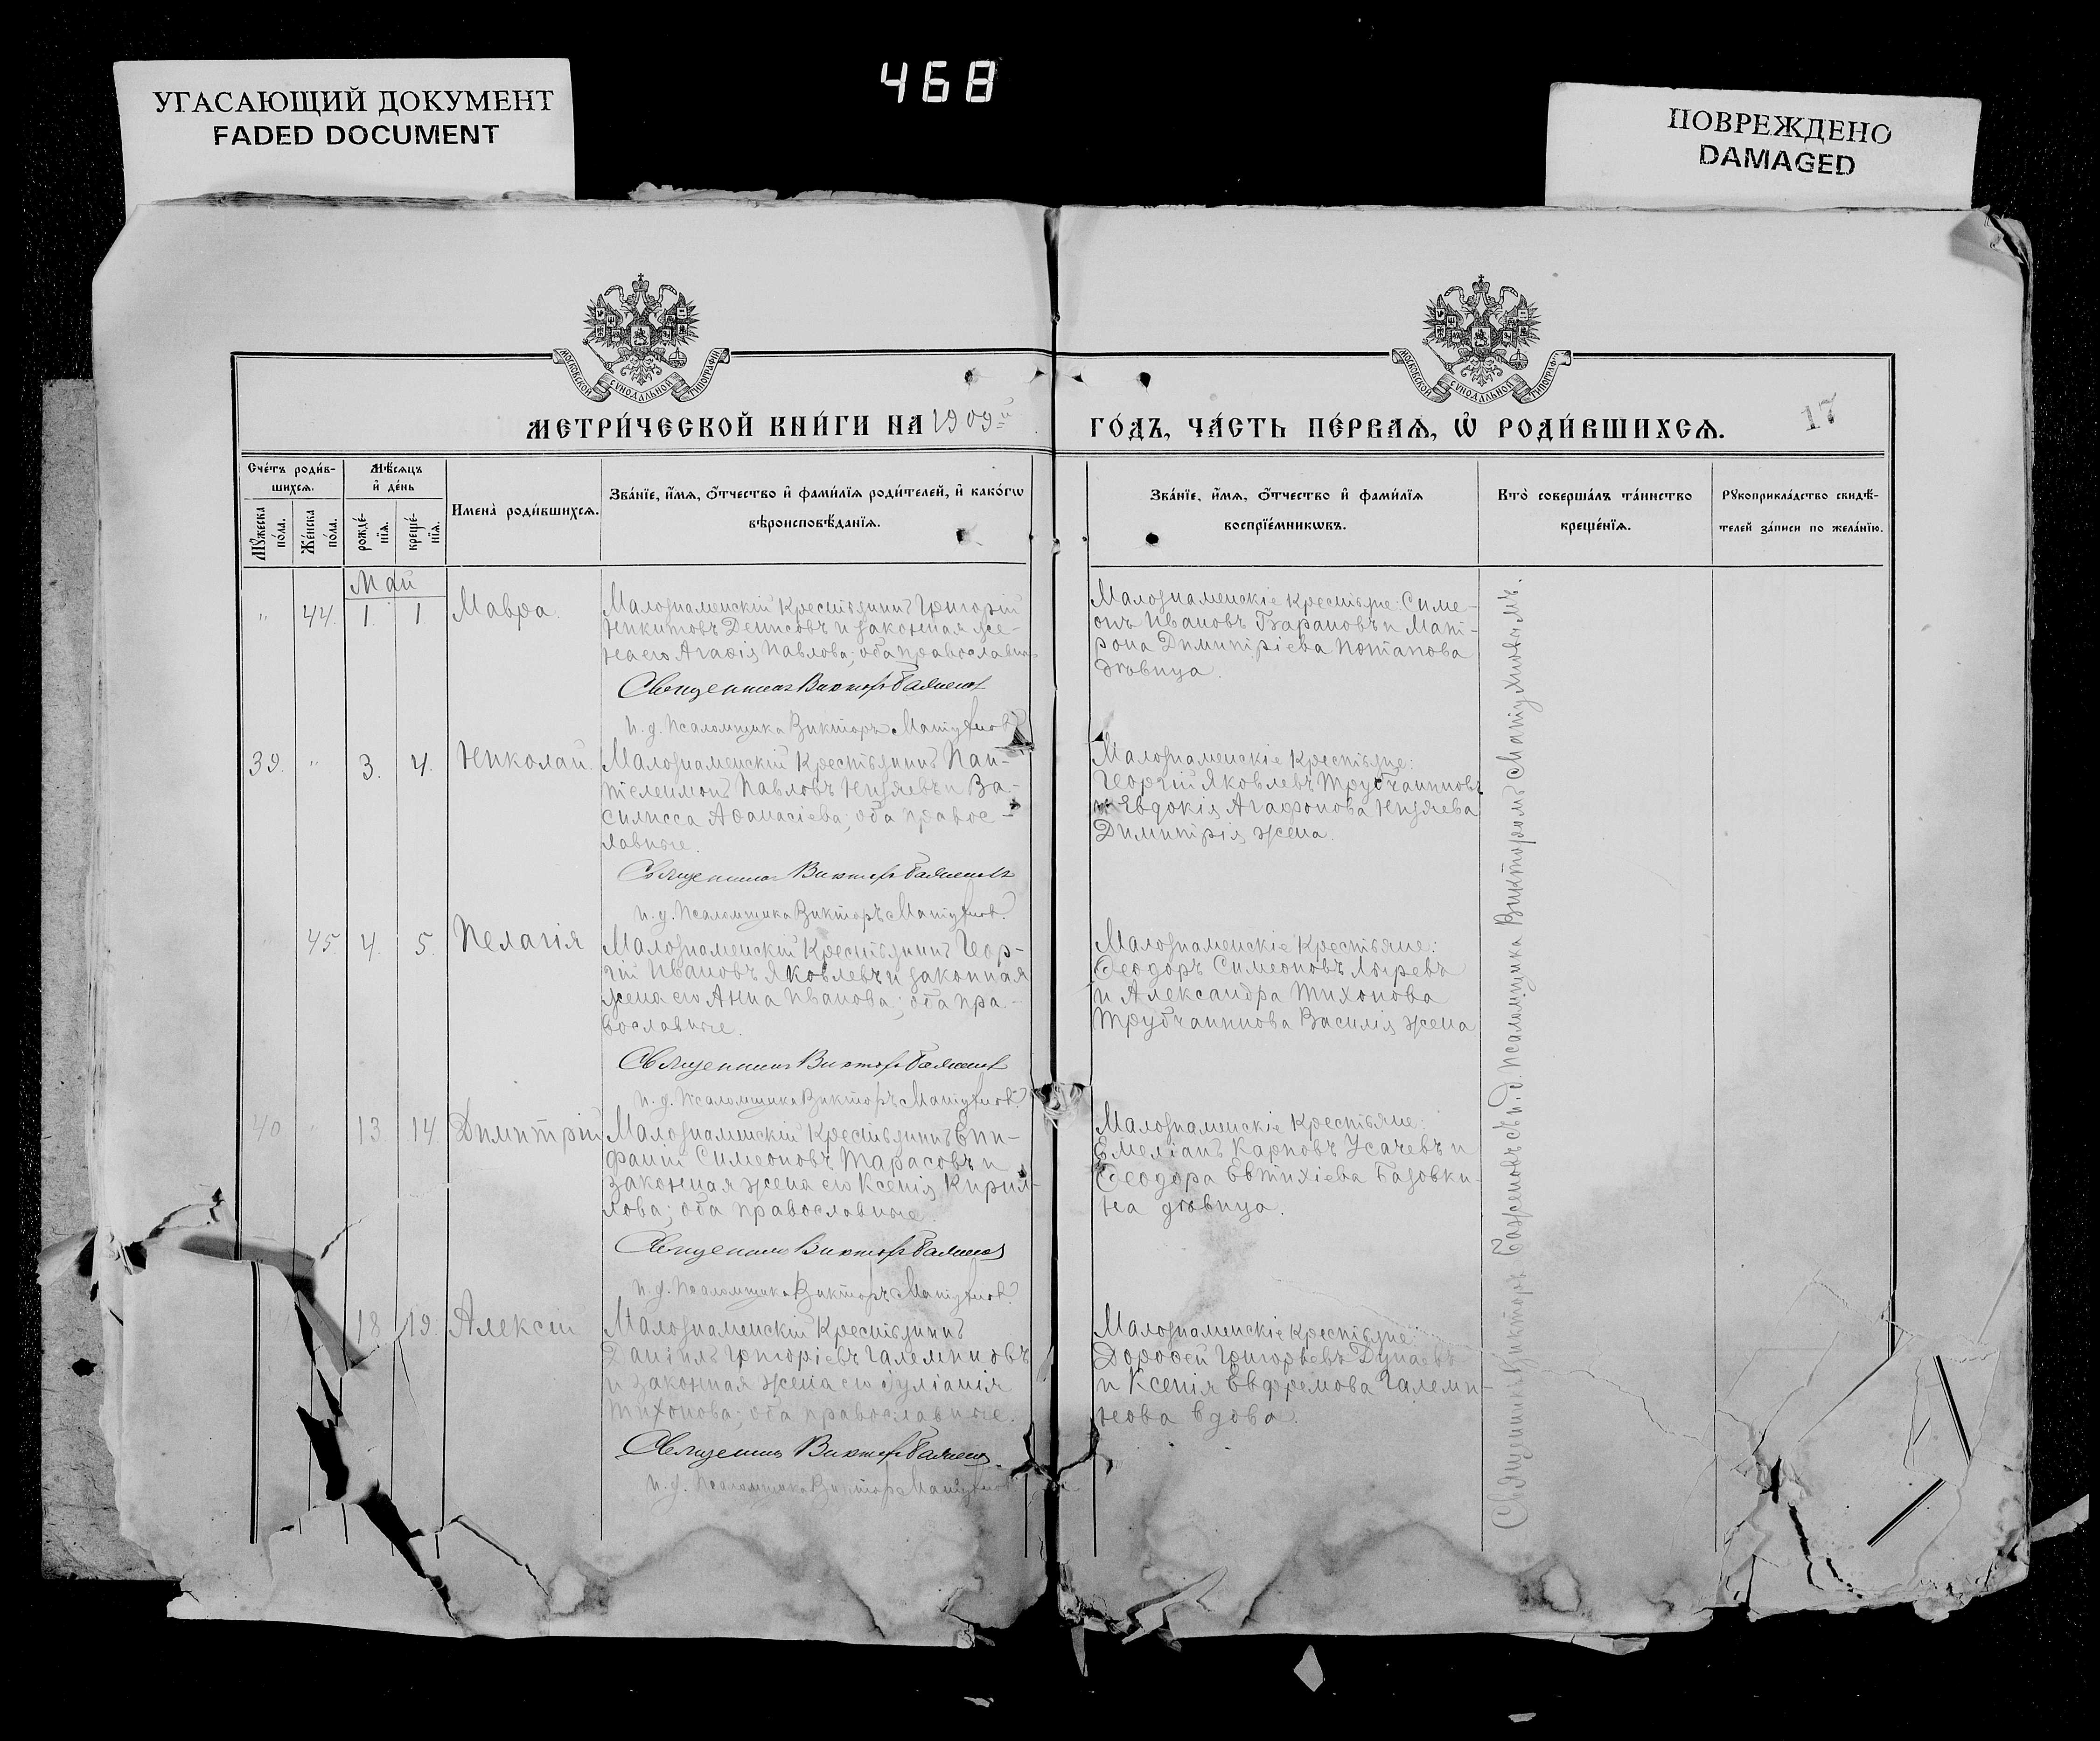 УГАСАЮЩИЙ ДОКУМЕНТ
FADED DOCUMENT
468
ПОВРЕЖДЕНО
DAMAGED
МОСКОВСКОЙ СѴНОДАЛЬНОЙ ТИПОГРАФІИ
МОСКОВСКОЙ СѴНОДАЛЬНОЙ ТИПОГРАФІИ
МЕТРИ́ЧЕСКОЙ КНИ́ГИ НА 1909й
ГО́ДЪ, ЧА́СТЬ ПЕ́РВАѦ, Ѡ РОДИ́ВШИХСѦ.
17
Сче́тъ роди́в-
шихсѧ.
Мꙋ́жеска по́ла.
Же́нска по́ла.
Мѣ́сѧцъ
и҆ де́нь
рожде́-
нїѧ.
креще́-
нїѧ.
Имена̀ роди́вшихсѧ.
Зва́нїе, и҆́мѧ, ѻ҆́тчество и҆ фами́лїѧ роди́телей, и҆ како́гѡ
вѣроисповѣ́данїѧ.
Зва́нїе, и҆́мѧ, ѻ҆́тчество и҆ фами́лїѧ
воспрїе́мникѡвъ.
Кто̀ соверша́лъ та́инство
креще́нїѧ.
Рꙋкоприкла́дство свидѣ́-
телей за́писи по жела́нїю.
Май
" 44. 1. 1. Мавра.
Малознаменскій Крестьянинъ Григорій
Никитовъ Денисовъ и законная же-
на его Агафія Павлова; оба православные
Священникъ Викторъ Баженовъ
И. д. Псаломщика Викторъ Матуховъ
Малознаменскіе Крестьяне: Симе-
онъ Ивановъ Барановъ и Мат-
рона Димитріева Потапова
дѣвица.
39. " 3. 4. Николай.
Малознаменскій Крестьянинъ Пан-
телеимонъ Павловъ Низяевъ и Ва-
силисса Аѳанасіева; оба правос-
лавные.
Священникъ Викторъ Баженовъ
И. д. Псаломщика Викторъ Матуховъ
Малознаменскіе Крестьяне:
Георгій Яковлевъ Трубчаниновъ
и Евдокія Агафонова Низяева
Димитрія жена.
45. 4. 5. Пелагія
Малознаменскій Крестьянинъ Геор-
гій Ивановъ Яковлевъ и законная
жена его Анна Иванова; оба пра-
вославные.
Священникъ Викторъ Баженовъ
И. д. Псаломщика Викторъ Матуховъ
Малознаменскіе Крестьяне:
Ѳеодоръ Симеоновъ
и Александра Тихонова
Трубчанинова Василія жена
40 " 13 14 Димитрій
Малознаменскій Крестьянинъ Епи-
фаній Симеоновъ Тарасовъ и
законная жена его Ксенія Кирил-
лова; оба православные.
Священникъ Викторъ Баженовъ
И. д. Псаломщика Викторъ Матуховъ
Малознаменскіе Крестьяне:
Емеліанъ Карповъ Усачевъ и
Ѳеодора Евтихіева Базовки-
на дѣвица.
18 19 Алексій
Малознаменскій Крестьянинъ
Даніилъ Григоріевъ Галемновъ
и законная жена его Іуліанія
Тихонова; оба православные.
Священникъ Викторъ Баженовъ
И. д. Псаломщика Викторъ Матуховъ
Малознаменскіе Крестьяне:
Дороѳей Григорьевъ Дунаевъ
и Ксенія Евфремова Галемн-
нова вдова.
Священникъ Викторъ Баженовъ съ и. д. Псаломщика Викторомъ Матуховымъ.